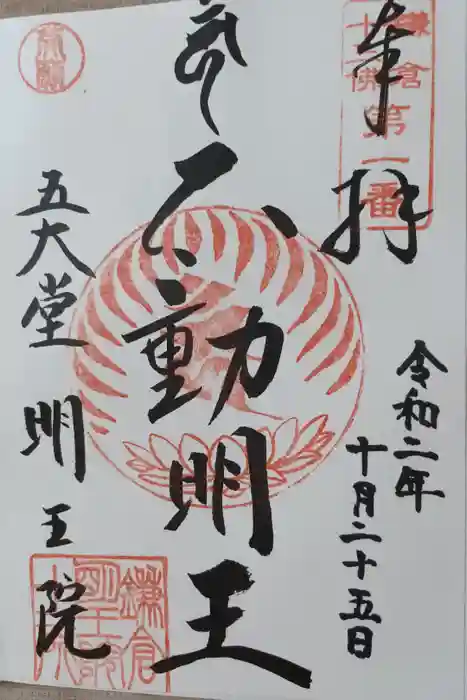 奉拝
鎌倉
十三佛
第一番
令和二年
十月二十五日
不動明王
五大堂
明王院